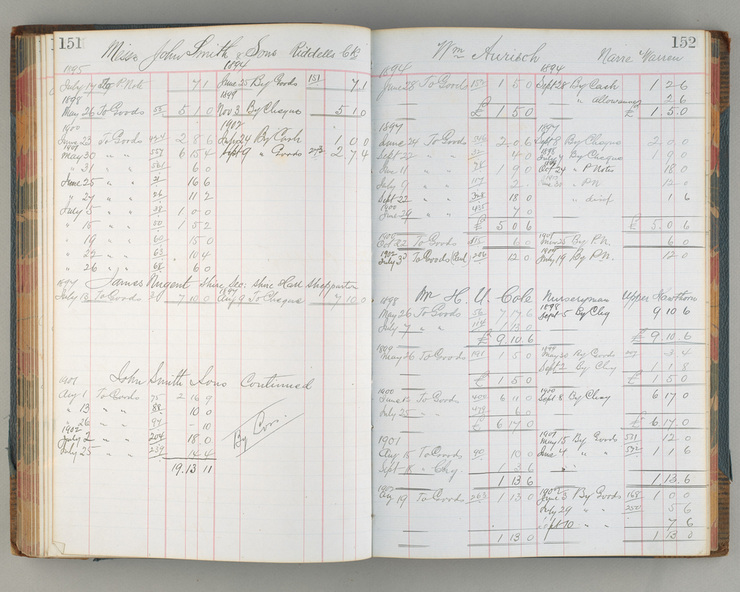 151
Messrs John Smith & Sons Riddells Ck
1895 1894
July 17 To P. Note 7 1 June 25 By Goods 151 7 1
1898 1899
May 26 To Goods 55 5 1 0 Nov 3 By Cheque 5 1 0
1900 1902
June 23 To Goods 2 8 6 July 24 By Cash 1 0 0
1901
May 30 " " 6 15 4 Sept 9 " Goods 2 7 4
" 31 " " 6 0
June 25 " " 16 6
" 27 " " 26 11 2
July 5 " " 1 0 0
" 15 " " 50 1 5 2
" 19 " " 60 15 0
" 22 " " 63 10 4
" 26 " " 68 6 0
1897 James Nugent Shire Sec. Shire Hall Shepparton
July 13 To Goods 7 10 0 Aug 9 To Cheque 7 10 0
John Smith & Sons Continued
1901
Aug 1 To Goods 75 2 16 9
" 13 " " 88 10 0
" 26 " " 97 10
1902
July 2 " " 204 18 0
July 25 " " 239 14 4
19 13 11
By Con.
152
Wm Aurisch Narre Warren
1894 1894
June 28 To Goods 1 5 0 Sept 28 By Cash 1 2 6
" allowance 2 6
£ 1 5 0 £ 1 5 0
1897 1897
June 24 To Goods 2 0 6 Sept 8 By Cheque 2 0 0
Sept 22 " " 4 0 By Cheque 1 9 0
June 11 " " 1 9 0 Oct 24 " P Notes 18 0
July 9 " " 2 " P.N. 12 0
Sept 22 " " 18 0 " 1 6
1900
June 29 " " 435 7 0
£ 5 0 6 £ 5 0 6
Oct 22 To Goods 115 6 0 By P.N. 6 0
1902
July 3 To Goods 206 12 0 July 19 By P.N. 12 0
1898 Wm H. U. Cole Nurseryman Upper Hawthorn
1898
May 26 To Goods 56 7 17 6 Sept 5 By Chq 9 10 6
July 7 " " 114 1 13 0
£ 9 10 6 £ 9 10 6
1899 1899
May 26 To Goods 191 1 5 0 May 20 By Goods 3 4
Sept 2 By Chq 1 1 8
£ 1 5 0 £ 1 5 0
1900 1900
June To Goods 400 6 11 0 Sept 8 By Chq 6 17 0
July 25 " " 6 0
£ 6 17 0 £ 6 17 0
1901 1901
May 15 By Goods 531 12 0
Aug 15 To Goods 90 10 0 June 4 " " 532 1 1 6
Sept 18 " Chq 1 3 6
1 13 6 1 13 6
1902 1902
Aug 19 To Goods 263 1 13 0 June 5 By Goods 168 1 0 0
July 29 " " 250 5 6
Sept 10 " " 7 6
1 13 0 1 13 0